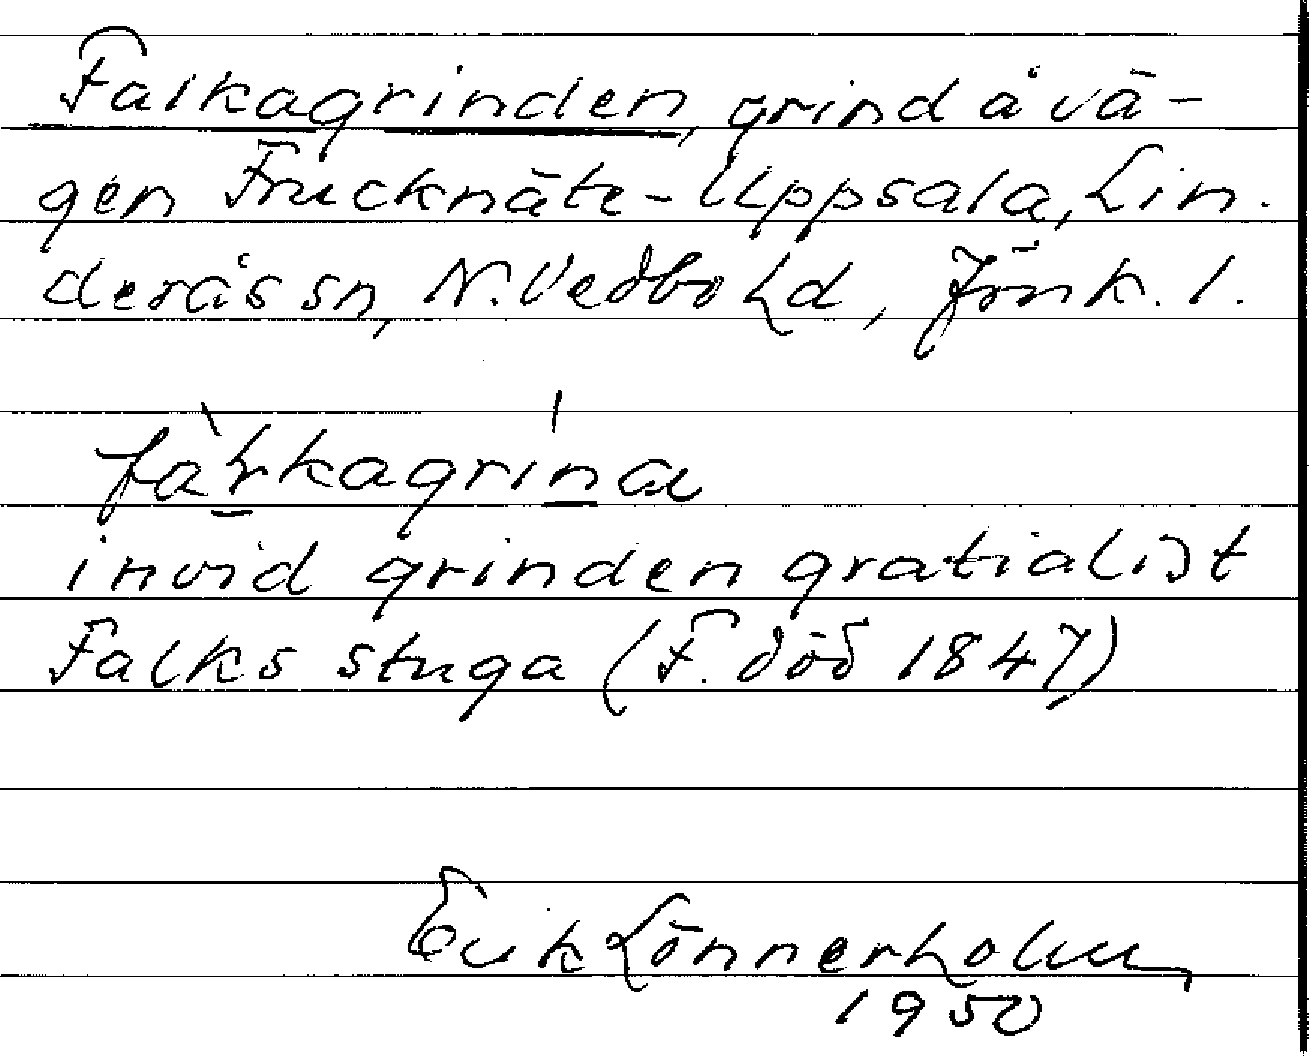 Falkagrinden, grind å vä-
gen Frucknäte-Uppsala, Lin.
derås sn, N. Vedbo hd, Jönk. l.
fàłkagrína
invid grinden gratialist
Falks stuga (F. död 1847)
Erik Lönnerholm
1950